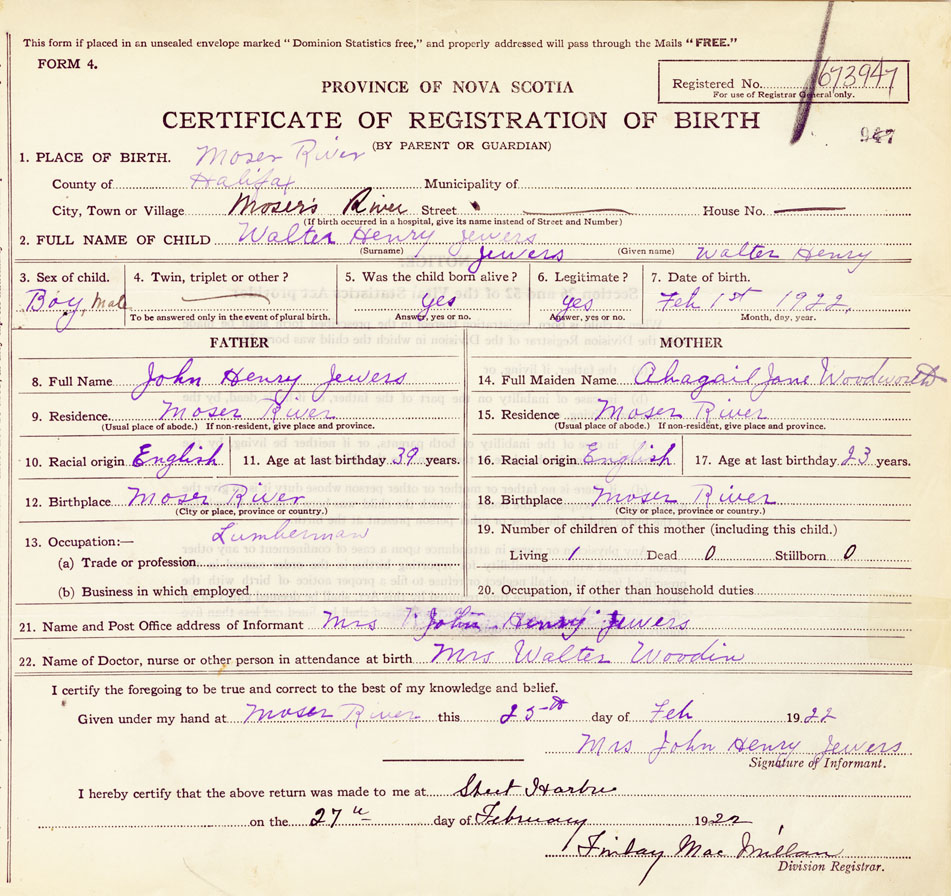 This form if placed in an unsealed envelope marked "Dominion Statistics free," and properly addressed will pass through the Mails "FREE."
FORM 4.
PROVINCE OF NOVA SCOTIA
Registered No. 673947
For use of Registrar General only.
CERTIFICATE OF REGISTRATION OF BIRTH
947
(BY PARENT OR GUARDIAN)
1. PLACE OF BIRTH. Moser River
County of Halifax Municipality of
City, Town or Village Moser's River Street House No.
(If birth occurred in a hospital, give its name instead of Street and Number)
2. FULL NAME OF CHILD Walter Henry Jewers
(Surname) Jewers (Given name) Walter Henry
3. Sex of child. 4. Twin, triplet or other? 5. Was the child born alive? 6. Legitimate? 7. Date of birth.
Boy, Male yes yes Feb 1st 1922.
To be answered only in the event of plural birth. Answer, yes or no. Answer, yes or no. Month, day, year.
FATHER MOTHER
8. Full Name John Henry Jewers 14. Full Maiden Name Abagail Jane Woodworth
9. Residence. Moser River 15. Residence Moser River
(Usual place of abode.) If non-resident, give place and province. (Usual place of abode.) If non-resident, give place and province.
10. Racial origin English 11. Age at last birthday 39 years. 16. Racial origin English 17. Age at last birthday 23 years.
12. Birthplace Moser River 18. Birthplace Moser River
(City or place, province or country.) (City or place, province or country.)
13. Occupation:— Lumberman 19. Number of children of this mother (including this child.)
(a) Trade or profession Living 1 Dead 0 Stillborn 0
(b) Business in which employed 20. Occupation, if other than household duties
21. Name and Post Office address of Informant Mrs John Henry Jewers
22. Name of Doctor, nurse or other person in attendance at birth Mrs Walter Woodin
I certify the foregoing to be true and correct to the best of my knowledge and belief.
Given under my hand at Moser River this 25th day of Feb 1922
Mrs John Henry Jewers
Signature of Informant.
I hereby certify that the above return was made to me at Sheet Harbor
on the 27th day of February 1922
Finlay MacMillan
Division Registrar.